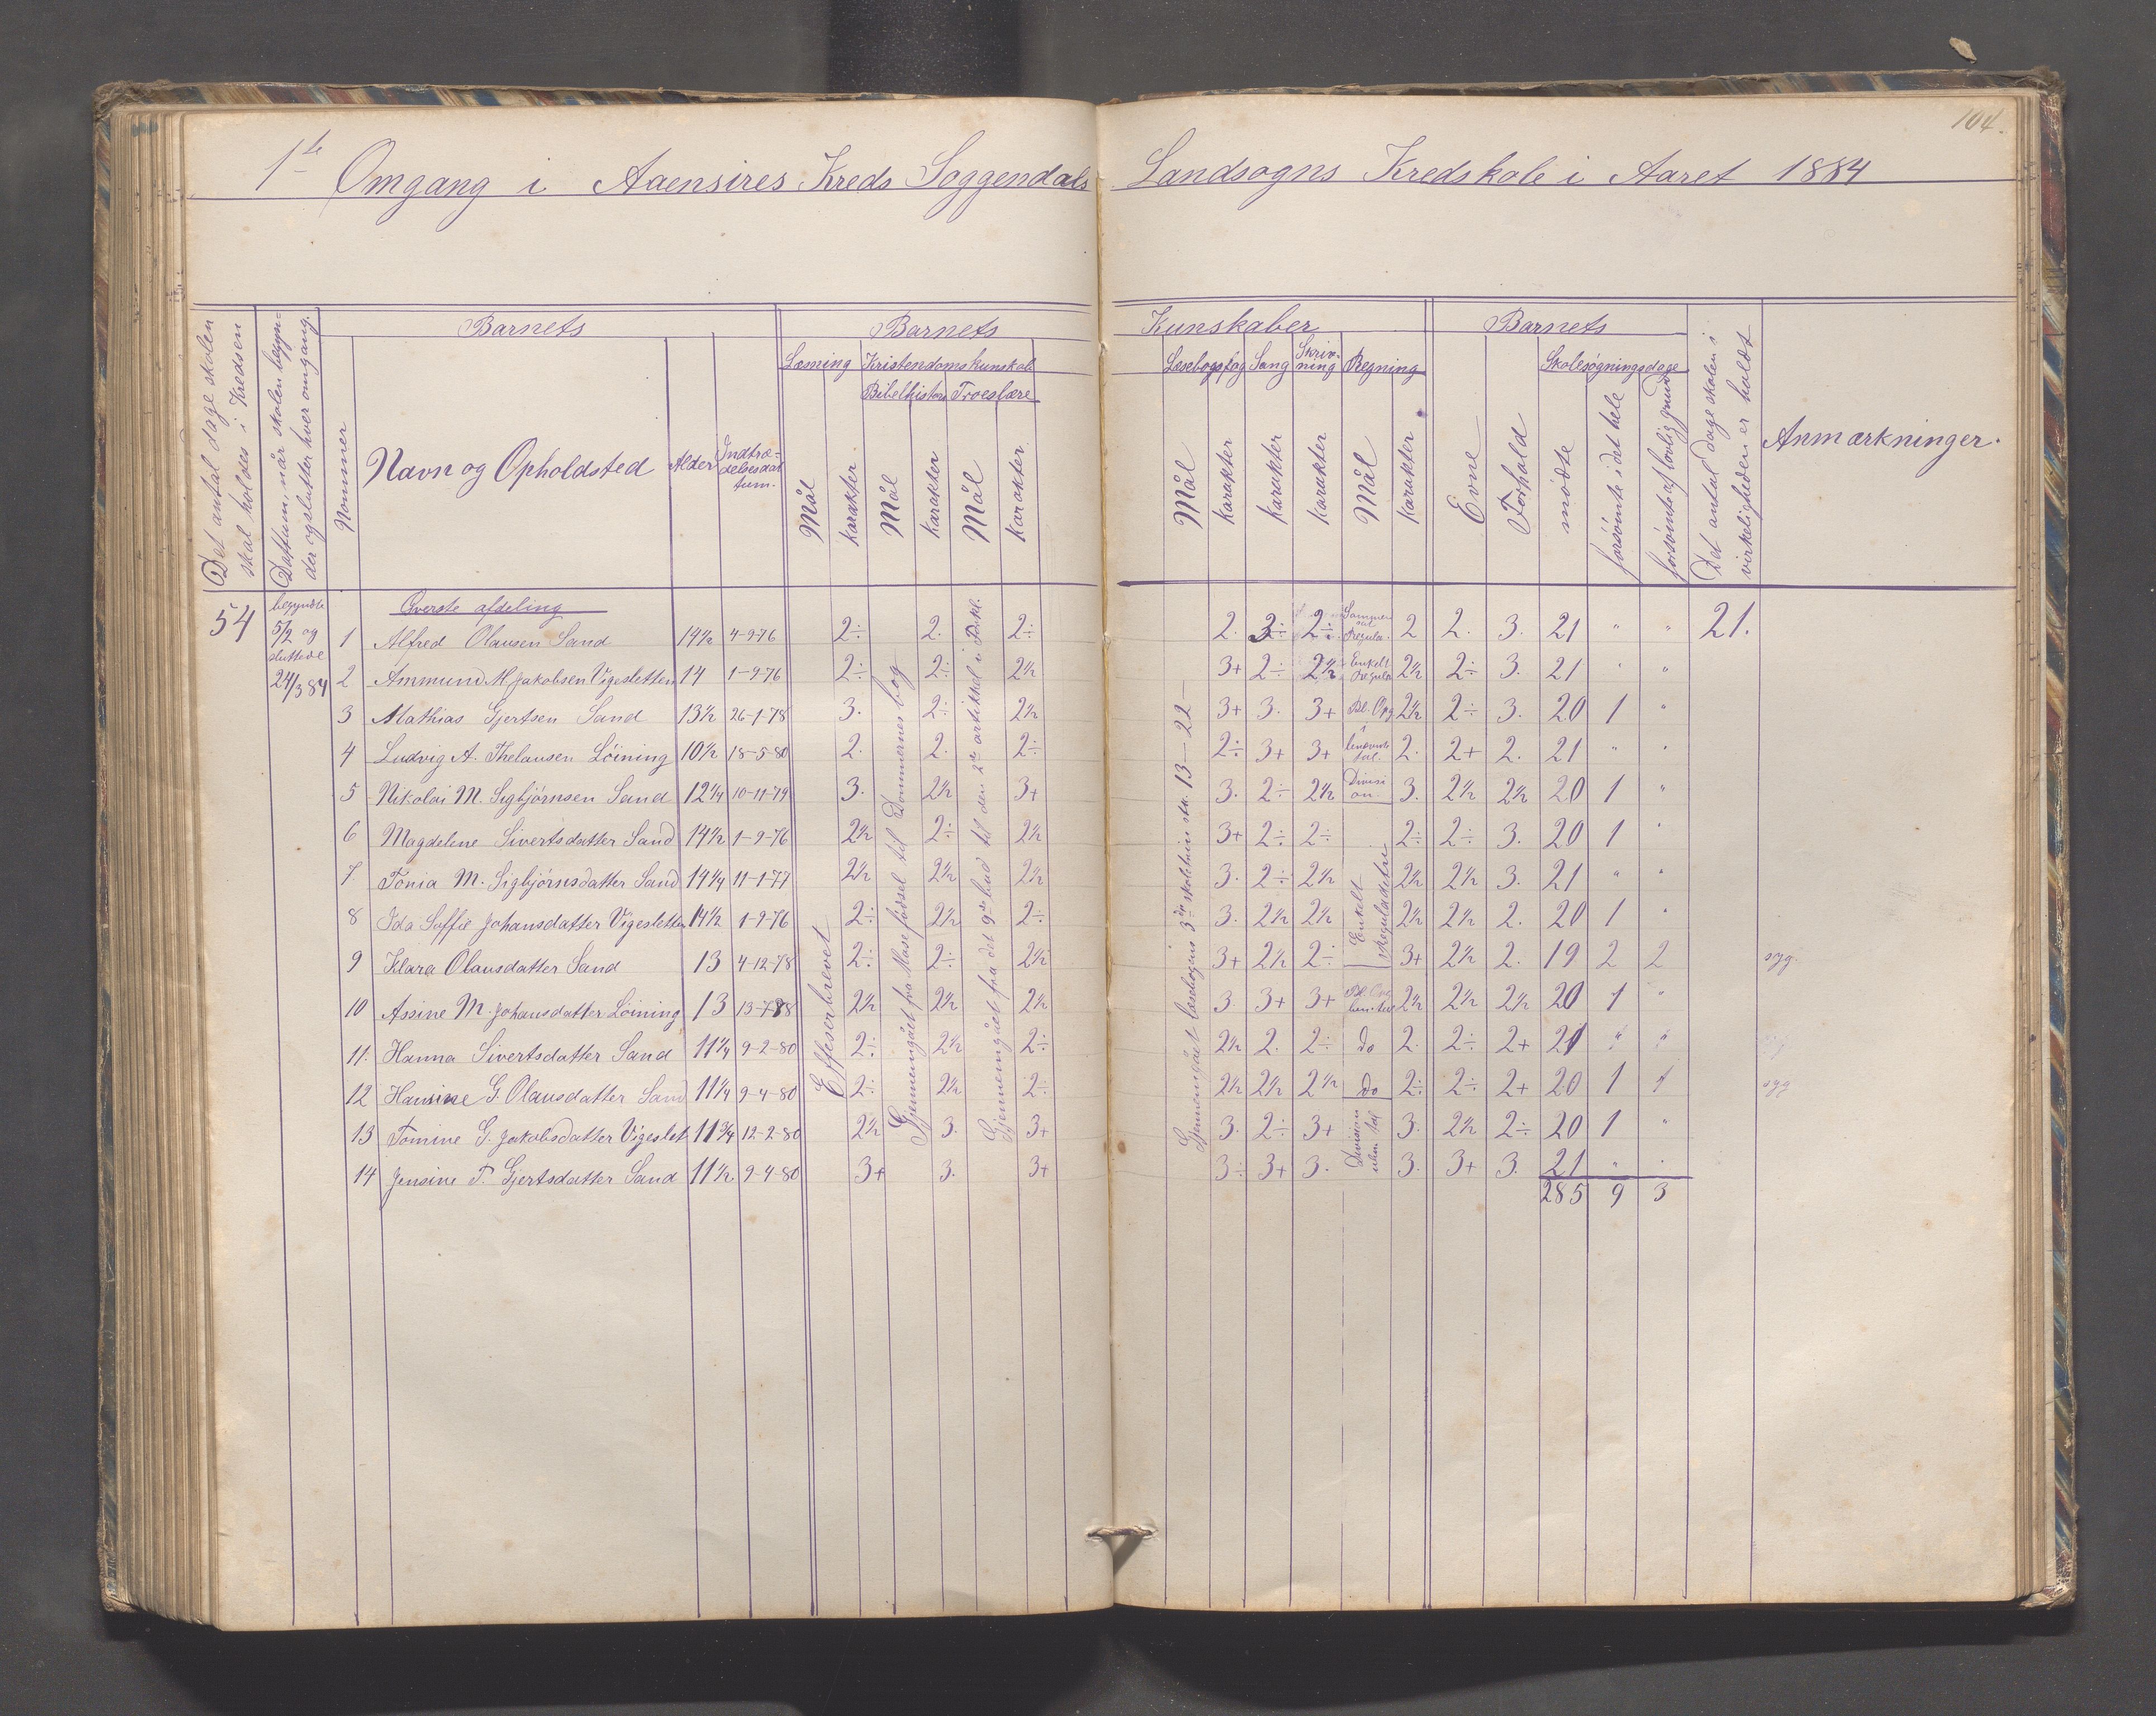 104.
1ste Omgang i Aaensires Kreds Soggendals Landsogns Kredskole i Aaret 1884
Det antal dage skolen skal holdes i Kredsen
Dattum, når skolen begynder og slutter hver omgang.
Barnets
Nommer
Navn og Opholdsted
Alder
Indtrædelsesdattum.
Barnets Kunskaber
Læsning
Mål
karakter
Kristendomskunskab
Bibelhistorie
Mål
karakter
Troeslære
Mål
karakter
Læsebogsfag
Mål
karakter
Sang
karakter
Skrivning
karakter
Regning
Mål
karakter
Barnets
Evne
Forhold
Skolesøgningsdage
mødte
forsømte i det hele
forsømt af lovlig grund
Det antal dage skolen i virkeligheden er holdt
Anmærkninger.
54
begyndte 5/2 og sluttede 24/3 84
Øverste afdeling
1 Alfred Olausen Sand 14½ 4-9-76 2÷ 2. 2÷ 2. 2÷ 2÷ Sammensat Regula. 2 2. 3. 21 " " 21.
2 Ammund M Jakobsen Vigesletten 14 1-9-76 2÷ 2÷ 2½ 3+ 2÷ 2½ Enkelt Regula 2½ 2÷ 3. 21 " "
3 Mathias Gjertsen Sand 13½ 26-1-78 3. 2÷ 2½ 3+ 3. 3+ Bl. Opg 2½ 2÷ 3. 20 1 "
4 Ludvig A. Thelausen Löining 10½ 18-5-80 2. 2. 2÷ 2÷ 3+ 3+ i benævnte tal. 2. 2+ 2. 21 " "
5 Nikolai M. Sigbjörnsen Sand 12¼ 10-11-79 3. 2½ 3+ 3. 2÷ 2½ Division 3. 2½ 2½ 20 1 "
6 Magdeline Sivertsdatter Sand 14½ 1-9-76 2½ 2÷ 2½ 3+ 2÷ 2÷ 2÷ 2÷ 3. 20 1 "
7 Tonia M. Sigbjörnsdatter Sand 14¼ 11-1-77 2½ 2½ 2½ 3. 2÷ 2½ 2½ 2½ 3. 21 " "
8 Ida Soffie Johansdatter Vigesletten 14½ 1-9-76 2÷ 2½ 2÷ 3. 2½ 2½ 2½ 2½ 2. 20 1 "
9 Klara Olausdatter Sand 13 4-12-78 2÷ 2÷ 2½ 3+ 2½ 2÷ 3+ 2½ 2. 19 2 2 syg.
10 Assine M. Johansdatter Löining 13 13-7-78 2½ 2½ 2½ 3. 3+ 3+ 2½ 2½ 2½ 20 1 "
11. Hanna Sivertsdatter Sand 11¼ 9-2-80 2÷ 2½ 2÷ 2½ 2. 2÷ do 2. 2÷ 2+ 21 " "
12 Hansine G. Olausdatter Sand 11¼ 9-4-80 2÷ 2½ 2÷ 2½ 2½ 2½ do 2÷ 2÷ 2+ 20 1 1 syg
13 Tomine G. Jakobsdatter Vigeslet 11¾ 12-2-80 2½ 3. 3+ 3. 2÷ 3+ Division 3. 2½ 2÷ 20 1 "
14 Jensine T. Gjertsdatter Sand 11½ 9-4-80 3+ 3. 3+ 3÷ 3+ 3. uben. tal 3. 3+ 3. 21 " "
285 9 3
Effeserbrevet
Gjennemgået fra Mose fødsel til Dommernes bog
Gjennemgået fra det 9de bud til den 2den artikkel i Forkl.
Gjennemgået læsebogens 3die skoletrin stk. 13–22
Enkelt Reguladetri